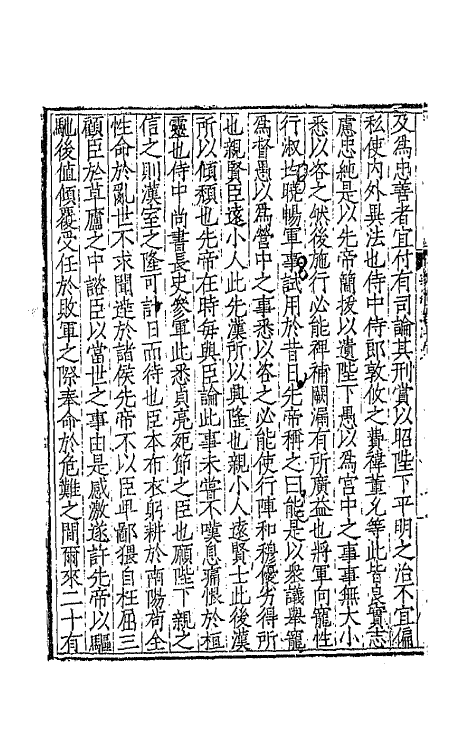 及為忠善者宜付有司論其刑賞以昭陛下平明之治不宜偏
私使内外異法也侍中侍郎敦攸之費禕董允等此皆良實志
慮忠純是以先帝簡拔以遺陛下愚以爲宮中之事事無大小
悉以咨之然後施行必能裨補闕漏有所廣益也將軍向寵性
行淑均曉暢軍事試用於昔日先帝稱之曰能是以衆議舉寵
爲督愚以爲營中之事悉以咨之必能使行陣和穆優劣得所
也親賢臣遠小人此先漢所以興隆也親小人遠賢士此後漢
所以傾頹也先帝在時每與臣論此事未嘗不嘆息痛恨於桓
靈也侍中尚書長史參軍此悉貞亮死節之臣也願陛下親之
信之則漢室之隆可計日而待也臣本布衣躬耕於南陽苟全
性命於亂世不求聞達於諸侯先帝不以臣卑鄙猥自枉屈三
顧臣於草廬之中諮臣以當世之事由是感激遂許先帝以驅
馳後值傾覆受任於敗軍之際奉命於危難之間爾來二十有